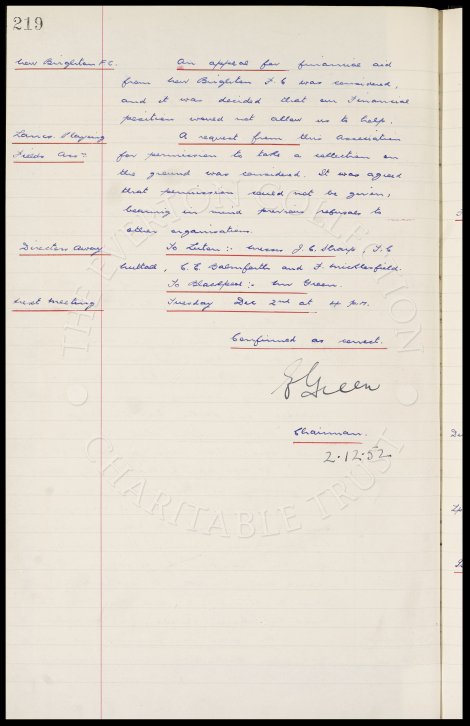 219
New Brighton F.C. An appeal for financial aid
from New Brighton F.C was considered,
and it was decided that our Financial
position would not allow us to help.
Lancs. Playing A request from this Association
Fields Ass: for permission to take a collection on
the ground was considered. It was agreed
that permission could not be given,
bearing in mind previous refusals to
other organisations.
Directors Away To Luton:- Messrs J.C. Sharp, F.C
E.E. Balmforth and F. Micklesfield.
To Blackpool:- Mr Green.
Next Meeting Tuesday Dec 2nd at 4 p.m.
Confirmed as correct.
E Green
Chairman.
2.12.52
THE EVERTON COLLECTION
CHARITABLE TRUST